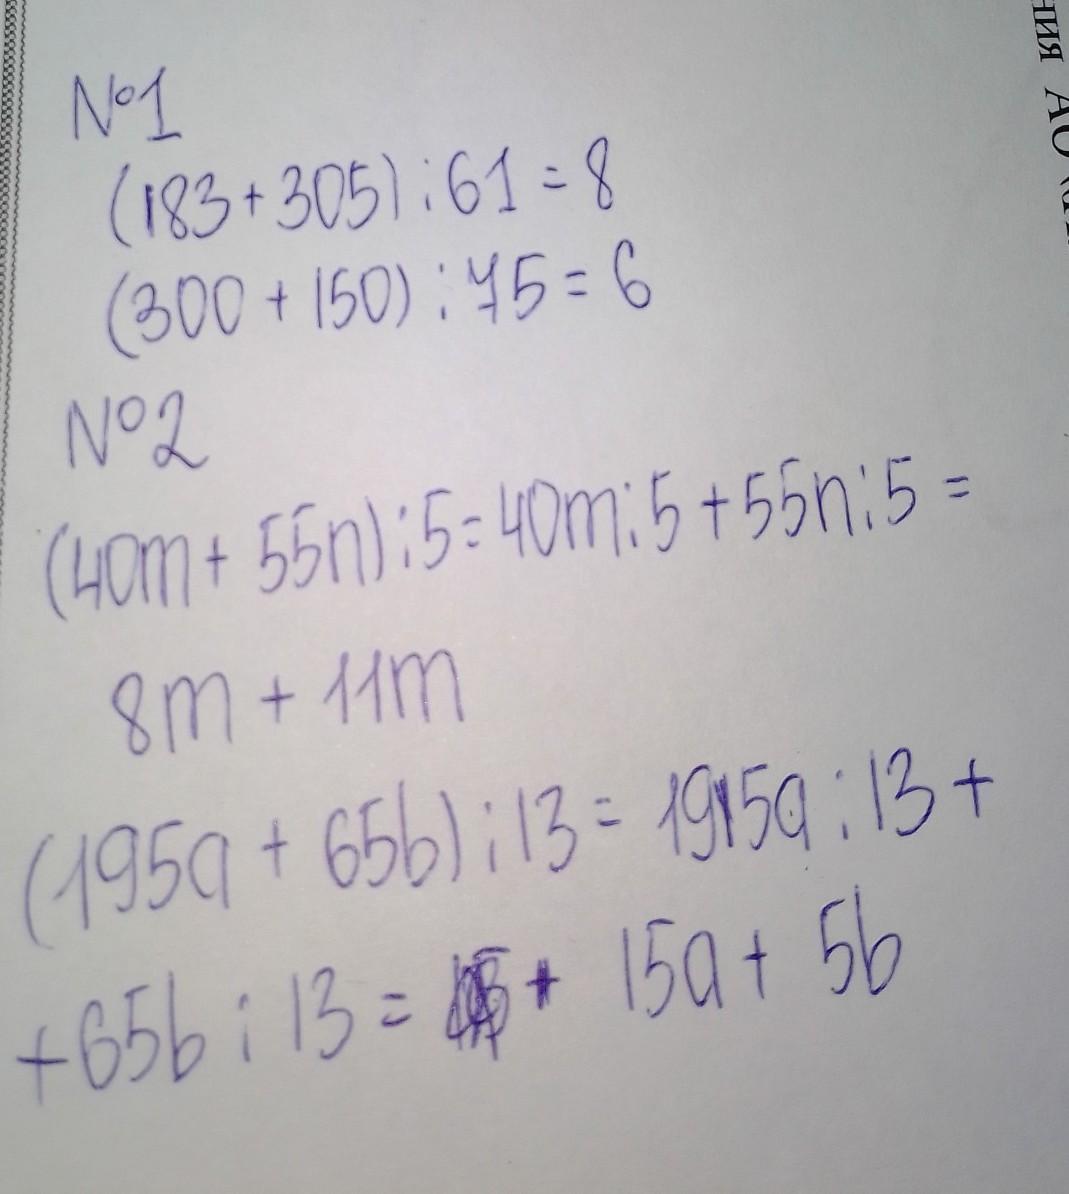 №1
(183+305):61=8
(300+150):75=6
№2
(40m+55n):5=40m:5+55n:5=
8m+11m
(195a+65b):13=195a:13+
+65b:13= + 15a+5b
ния АО